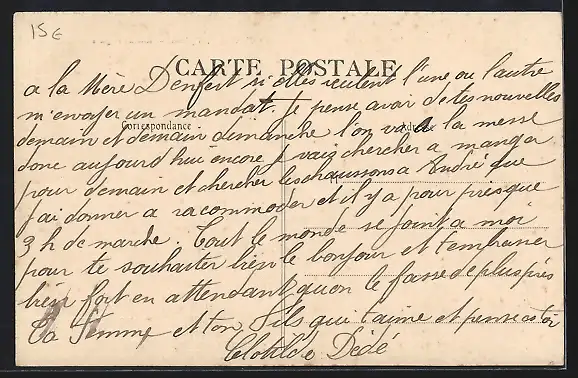 15€
CARTE POSTALE
Correspondance
Adresse
a la Mère Denfert si elles veulent l'une ou l'autre
m'envoyer un mandat. Je pense avoir de tes nouvelles
demain et demain dimanche l'on va a la messe
donc aujourd'hui encore je vais chercher a manger
pour demain et chercher les chaussons a André que
j'ai donner a racommoder et il y a pour presque
3 h de marche. Tout le monde se joint a moi
pour te souhaiter bien le bonjour et t'embrasser
bien fort en attendant qu'on le fasse de plus près
Ta femme et ton fils qui t'aime et pense a toi
Clotilde Dédé